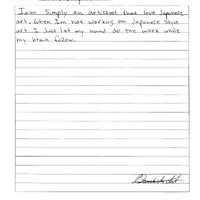 I am Simply an artist that love Japanese
art. When I'm not working on Japanese Style
art I Just let my hand do the work while
my brain follow.